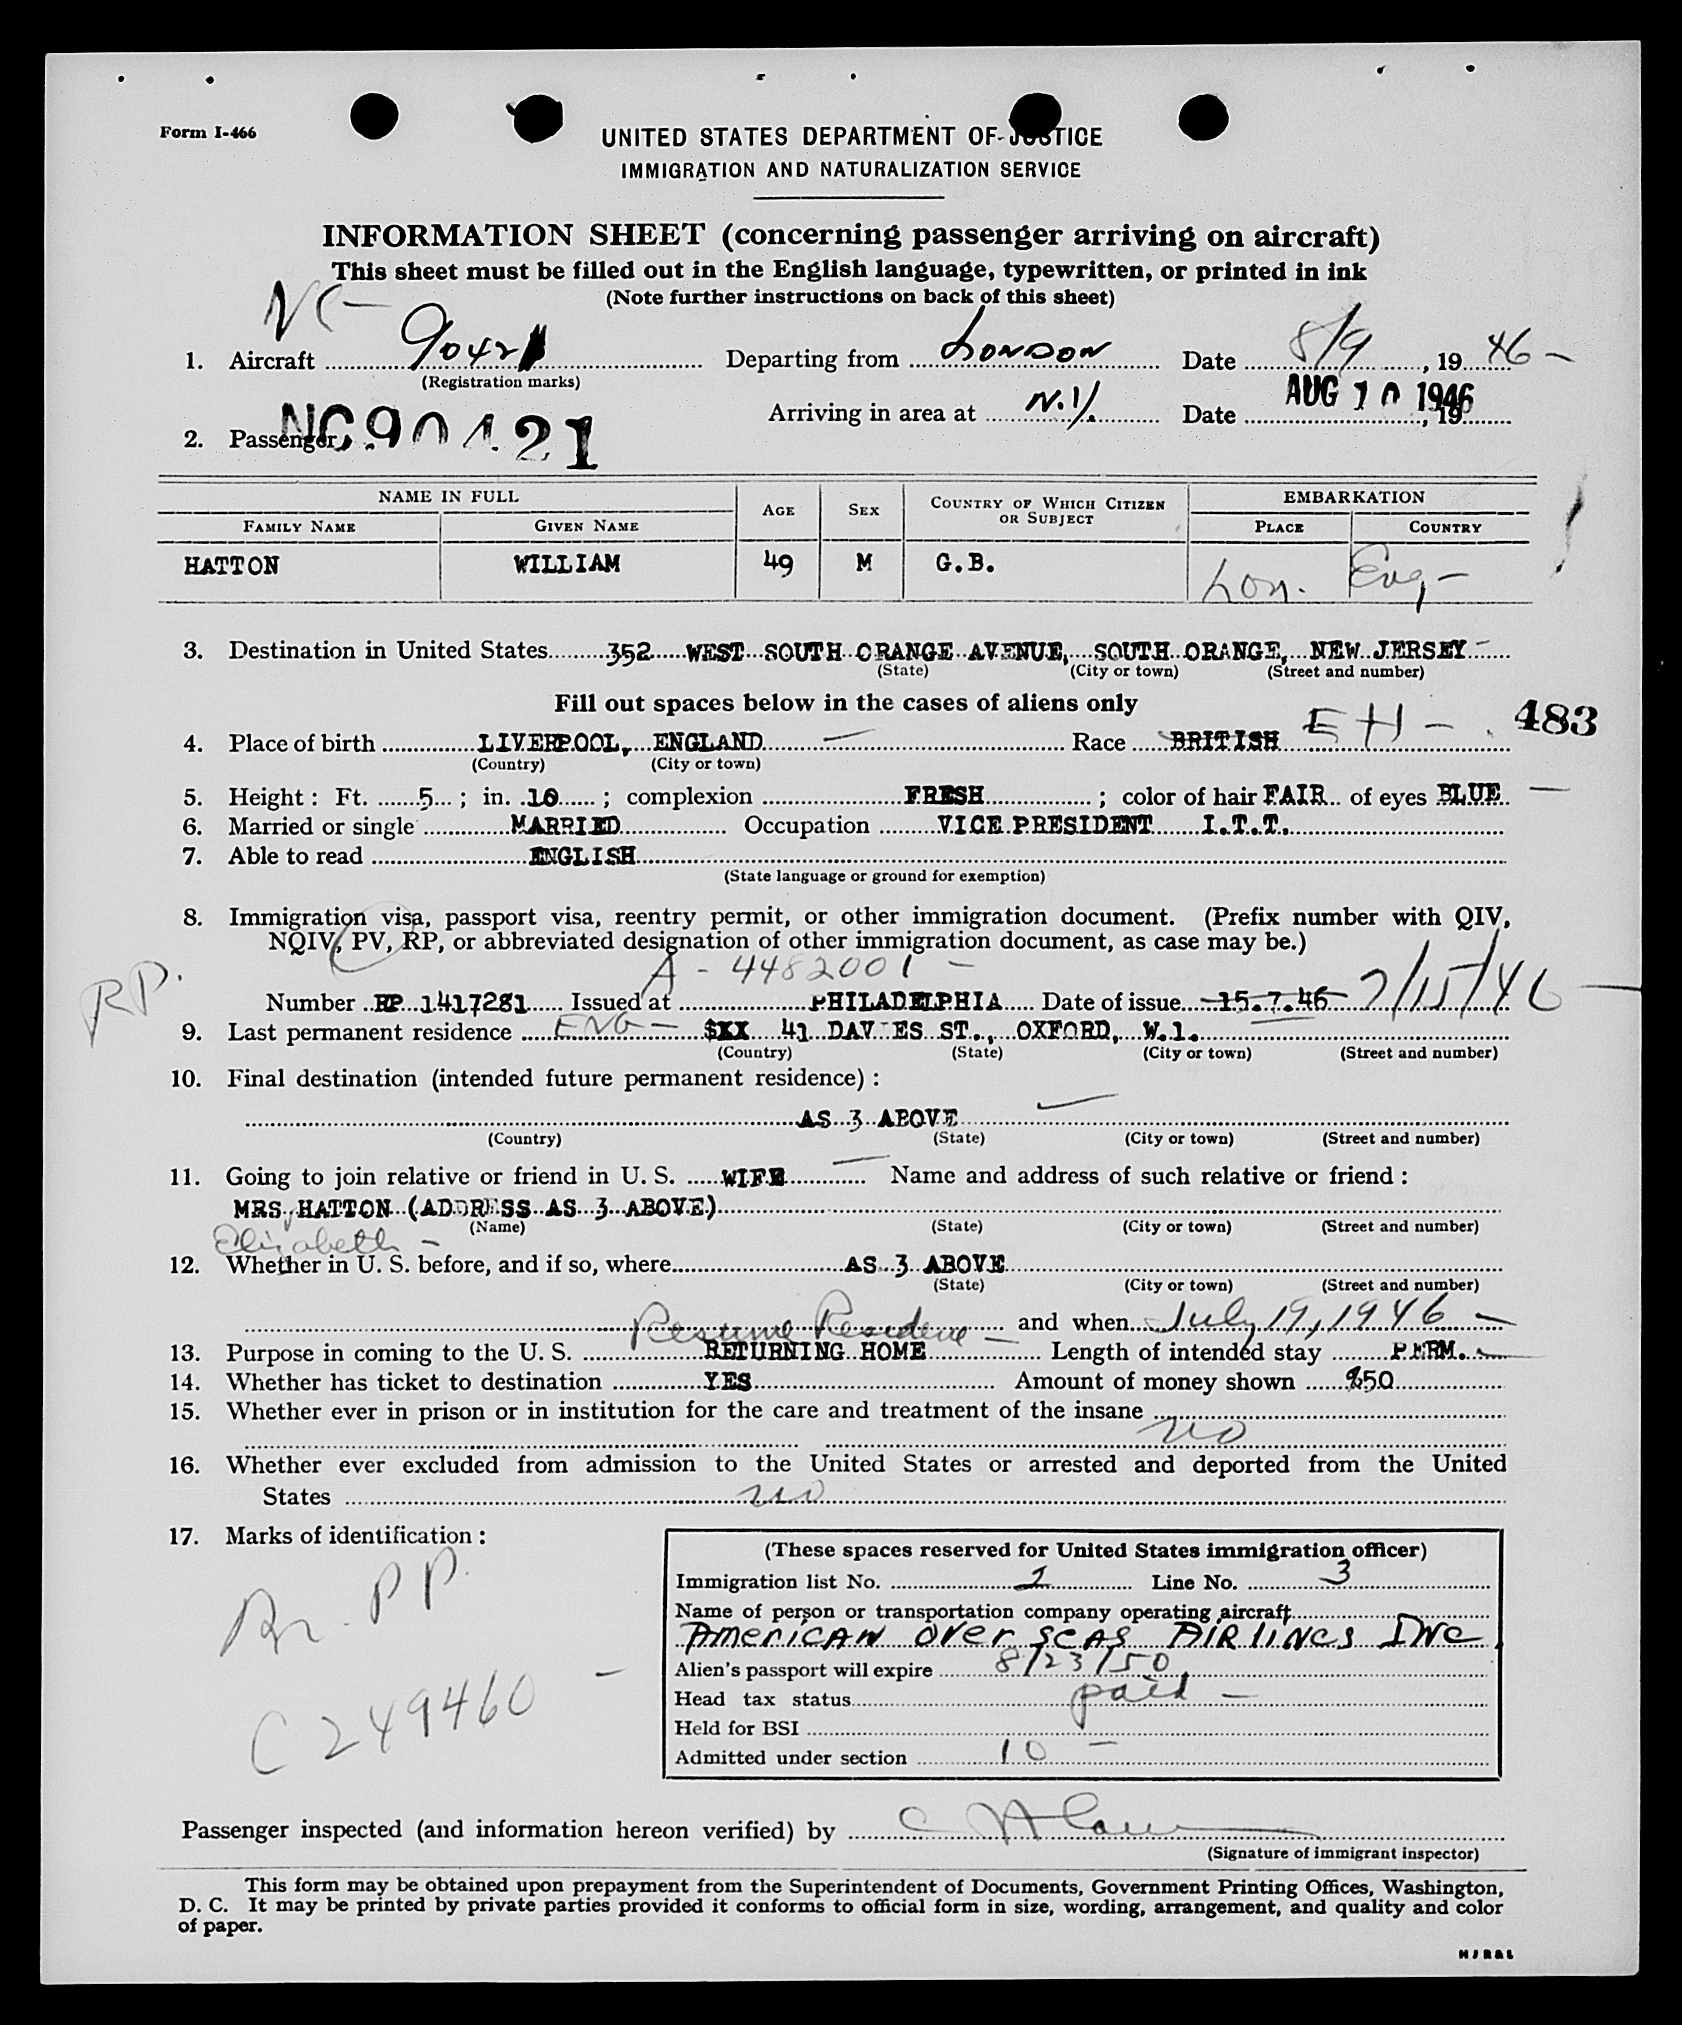 Form I-466
UNITED STATES DEPARTMENT OF JUSTICE
IMMIGRATION AND NATURALIZATION SERVICE
INFORMATION SHEET (concerning passenger arriving on aircraft)
This sheet must be filled out in the English language, typewritten, or printed in ink
(Note further instructions on back of this sheet)
NC-
1. Aircraft 90421 Departing from LONDON Date 8/9, 1946-
(Registration marks)
Arriving in area at N.Y. Date AUG 10 1946, 19
2. Passenger NC90421
NAME IN FULL AGE SEX COUNTRY OF WHICH CITIZEN OR SUBJECT EMBARKATION
FAMILY NAME GIVEN NAME PLACE COUNTRY
HATTON WILLIAM 49 M G.B. Lon. Eng-
3. Destination in United States 352 WEST SOUTH ORANGE AVENUE, SOUTH ORANGE, NEW JERSEY
(State) (City or town) (Street and number)
Fill out spaces below in the cases of aliens only
483
4. Place of birth LIVERPOOL, ENGLAND Race BRITISH
(Country) (City or town)
5. Height: Ft. 5; in. 10; complexion FRESH; color of hair FAIR of eyes BLUE
6. Married or single MARRIED Occupation VICE PRESIDENT I.T.T.
7. Able to read ENGLISH
(State language or ground for exemption)
8. Immigration visa, passport visa, reentry permit, or other immigration document. (Prefix number with QIV,
NQIV, PV, RP, or abbreviated designation of other immigration document, as case may be.)
A - 4482001 -
RP.
Number RP 1417281 Issued at PHILADELPHIA Date of issue 15.7.46 7/15/46
9. Last permanent residence ENG - $XX 41 DAVIES ST., OXFORD, W.1.
(Country) (State) (City or town) (Street and number)
10. Final destination (intended future permanent residence):
AS 3 ABOVE
(Country) (State) (City or town) (Street and number)
11. Going to join relative or friend in U. S. WIFE Name and address of such relative or friend:
MRS. HATTON (ADDRESS AS 3 ABOVE)
(Name) (State) (City or town) (Street and number)
Elizabeth -
12. Whether in U. S. before, and if so, where AS 3 ABOVE
(State) (City or town) (Street and number)
and when July 19, 1946 -
Resume Residence -
13. Purpose in coming to the U. S. RETURNING HOME Length of intended stay PERM.
14. Whether has ticket to destination YES Amount of money shown $50
15. Whether ever in prison or in institution for the care and treatment of the insane
no
16. Whether ever excluded from admission to the United States or arrested and deported from the United
States no
17. Marks of identification:
Br. PP.
C 249460 -
(These spaces reserved for United States immigration officer)
Immigration list No. 2 Line No. 3
Name of person or transportation company operating aircraft
AMERICAN OVERSEAS AIRLINES INC.
Alien's passport will expire 8/23/50
Head tax status paid -
Held for BSI
Admitted under section 10 -
Passenger inspected (and information hereon verified) by
(Signature of immigrant inspector)
This form may be obtained upon prepayment from the Superintendent of Documents, Government Printing Offices, Washington,
D. C. It may be printed by private parties provided it conforms to official form in size, wording, arrangement, and quality and color
of paper.